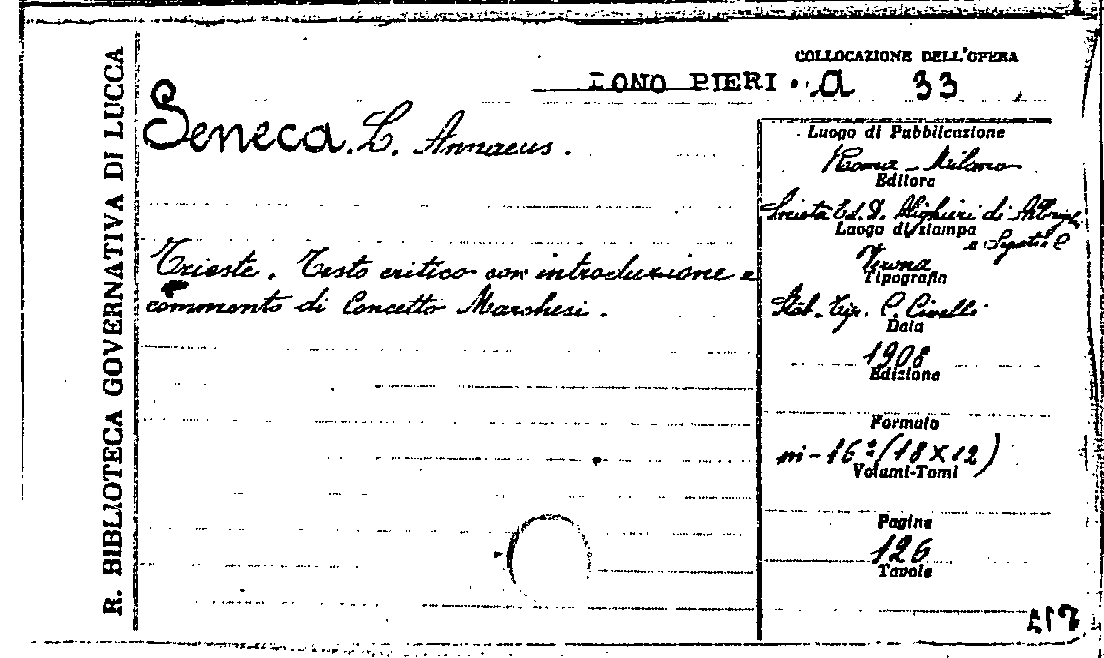 R. BIBLIOTECA GOVERNATIVA DI LUCCA
COLLOCAZIONE DELL'OPERA
DONO PIERI . a 33
Seneca. L. Annaeus.
Trieste. Testo critico con introduzione e
commento di Concetto Marchesi.
Luogo di Pubblicazione
Roma - Milano
Editore
Società Ed. D. Alighieri di Albrighi
e Segati e C
Luogo di stampa
Verona
Tipografia
Stab. Tip. C. Civelli
Data
1908
Edizione
Formato
in-16º (18 x 12)
Volumi-Tomi
Pagine
126
Tavole